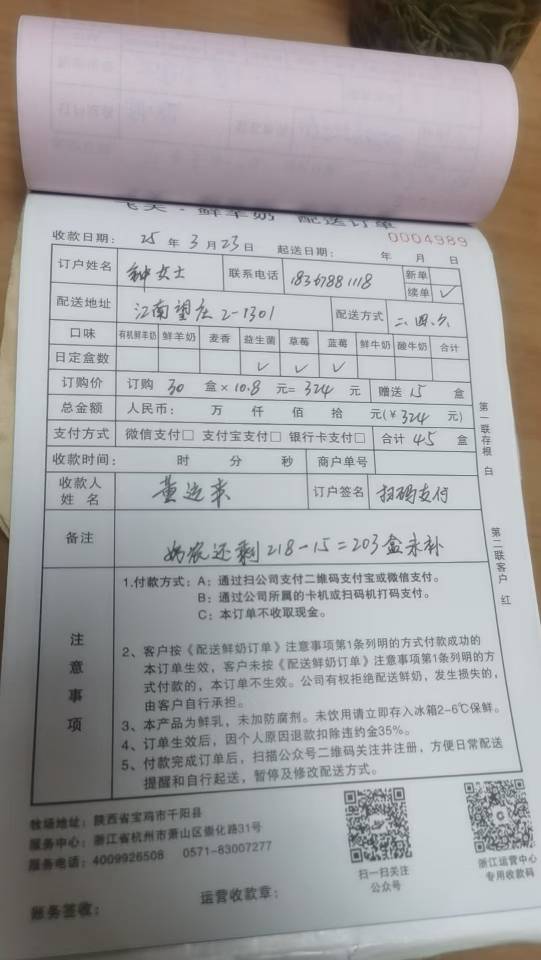 鲜羊奶 配送订单
0004989
收款日期: 25 年 3 月 23 日 起送日期: 年 月 日
订户姓名 钟女士 联系电话 18367881118 新单
续单 ✓
配送地址 江南望庄 2-1301 配送方式 二.四.六
口味 有机鲜羊奶 鲜羊奶 麦香 益生菌 草莓 蓝莓 鲜牛奶 酸牛奶 合计
日定盒数 ✓ ✓ ✓
订购价 订购 30 盒×10.8 元= 324 元 赠送 15 盒
总金额 人民币: 万 仟 佰 拾 元(¥324 元)
支付方式 微信支付□ 支付宝支付□ 银行卡支付□ 合计 45 盒
收款时间: 时 分 秒 商户单号
收款人
姓 名 黄运来 订户签名 扫码支付
备注 还剩218-15=203盒未补
第一联存根 白
第二联客户 红
注意事项
1.付款方式: A: 通过扫公司支付二维码支付宝或微信支付。
B: 通过公司所属的卡机或扫码机打码支付。
C: 本订单不收取现金。
2、客户按《配送鲜奶订单》注意事项第1条列明的方式付款成功的
本订单生效，客户未按《配送鲜奶订单》注意事项第1条列明的方
式付款的，本订单不生效。公司有权拒绝配送鲜奶，发生损失的，
由客户自行承担。
3、本产品为鲜乳，未加防腐剂。未饮用请立即存入冰箱2-6℃保鲜。
4、订单生效后，因个人原因退款扣除违约金35%。
5、付款完成订单后，扫描公众号二维码关注并注册，方便日常配送
提醒和自行起送，暂停及修改配送方式。
牧场地址: 陕西省宝鸡市千阳县
服务中心: 浙江省杭州市萧山区崇化路31号
服务电话: 4009926508 0571-83007277
扫一扫关注
公众号
浙江运营中心
专用收款码
账务签收:
运营收款章: